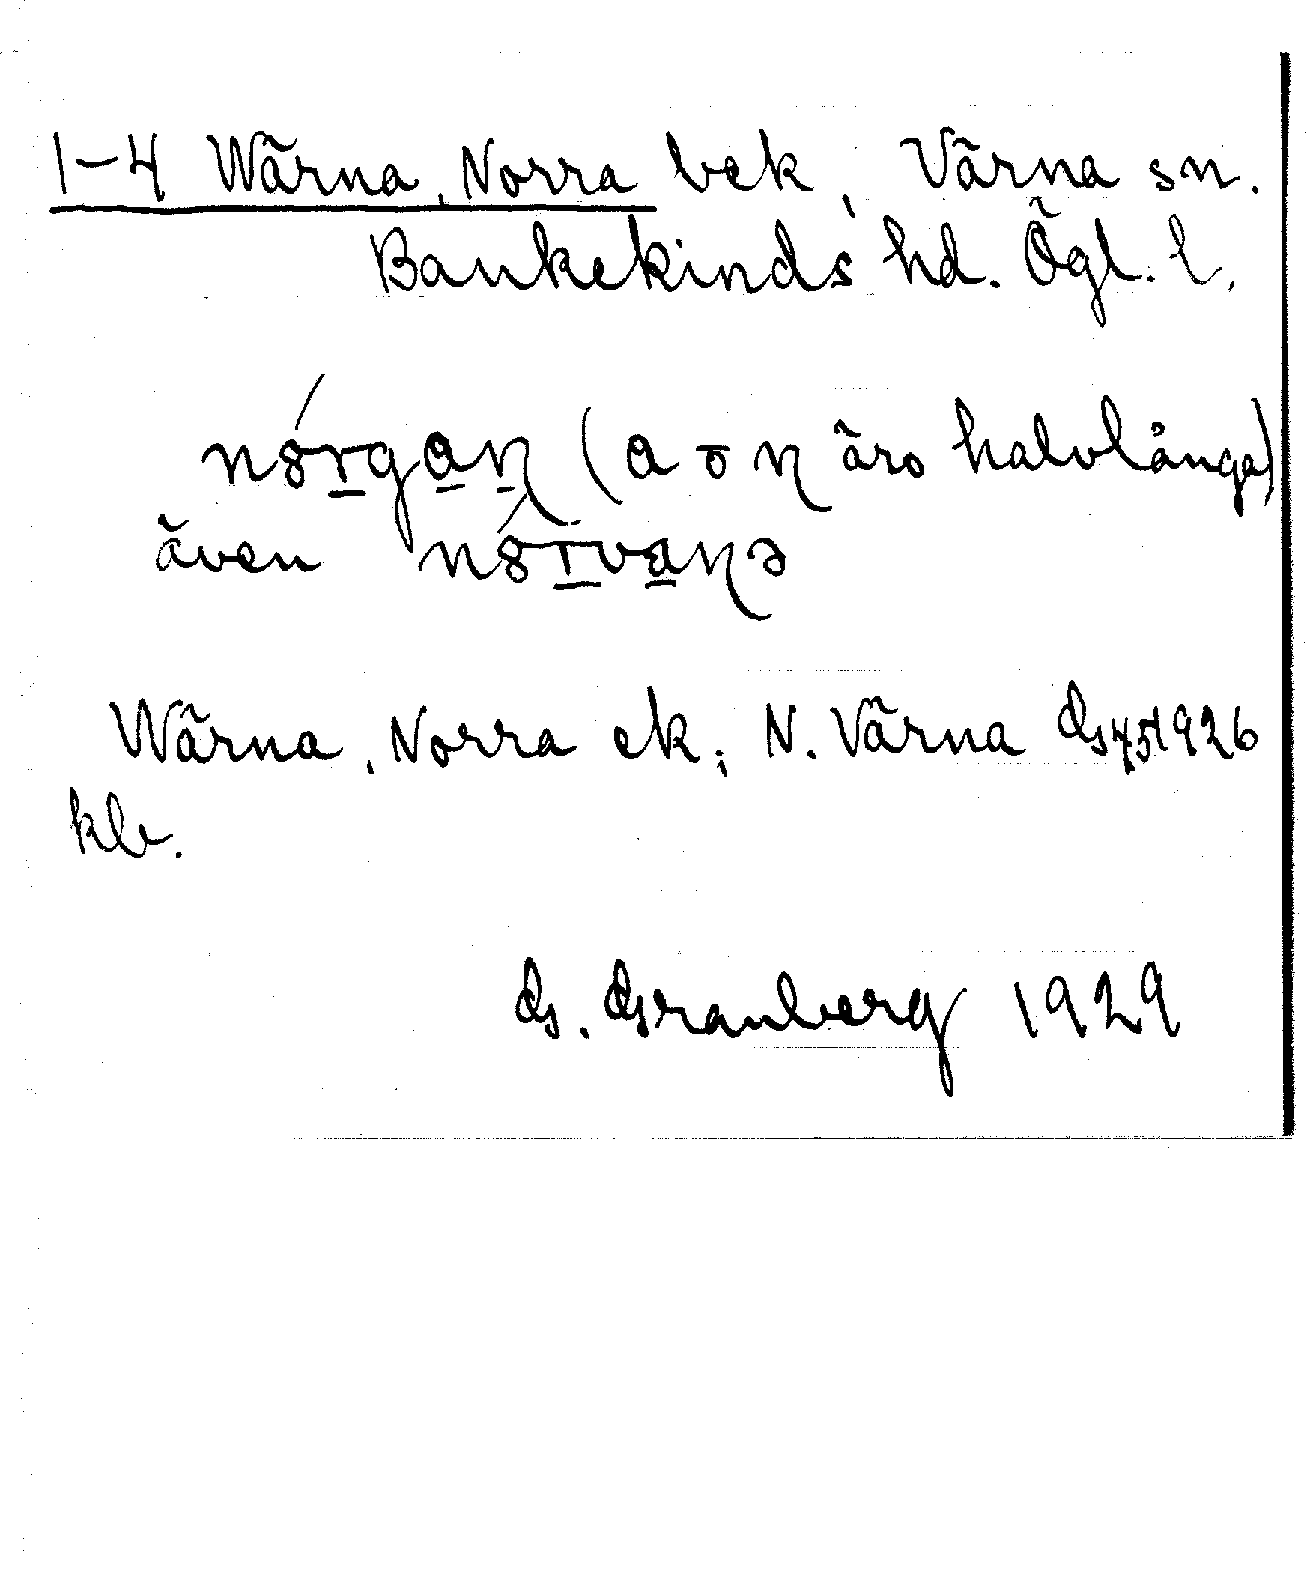 1-4 Wärna, Norra bek, Värna sn.
Bankekinds hd. Ögl. l.
nórgaɳ (a o ɳ äro halvlånga)
även nórvaɳə
Wärna, Norra ek; N. Värna Gs 45 1926
kb.
G. Granberg 1929